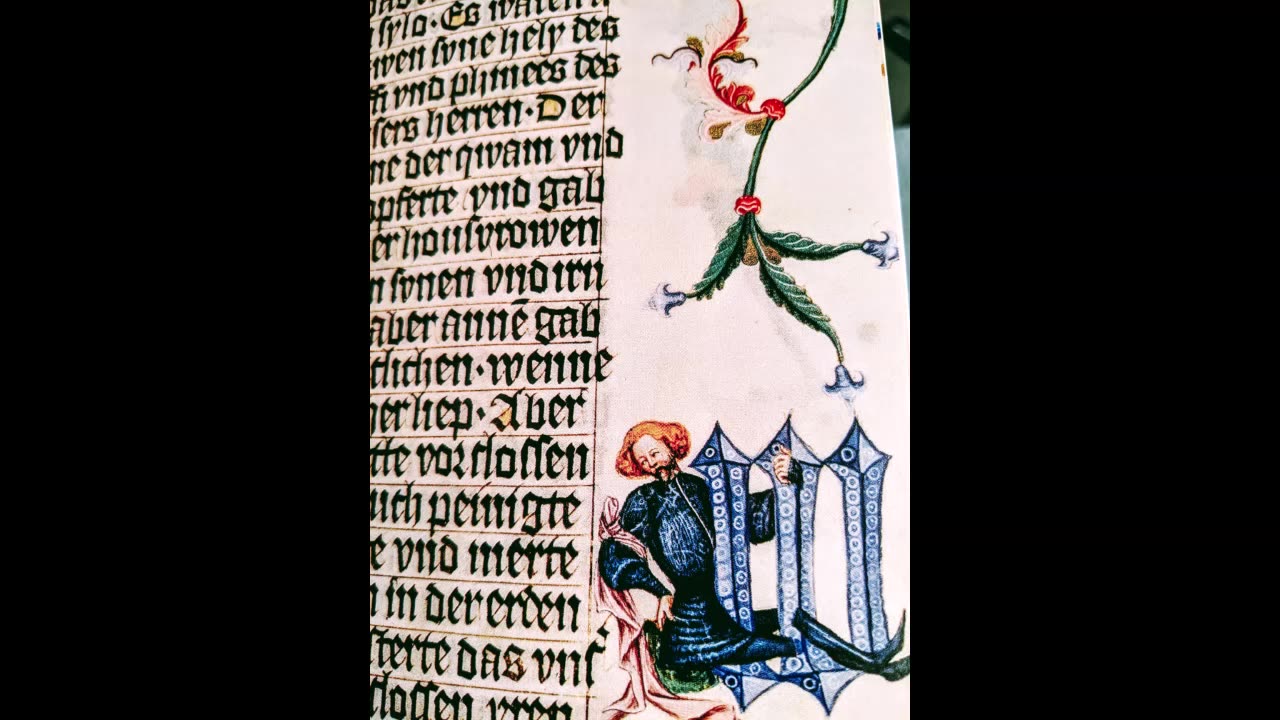 sylo · Es waren
wen svne hely des
vnd phinees des
sers herren · Der
ne der qwam vnd
opferte vnd gab
er housvrowen
n svnen vnd irn
aber annē gab
tlichen · wenne
her liep · Aber
tte vorslossen
uch peinigte
e vnd merte
n in der erden
sterte das vns
slossen vren